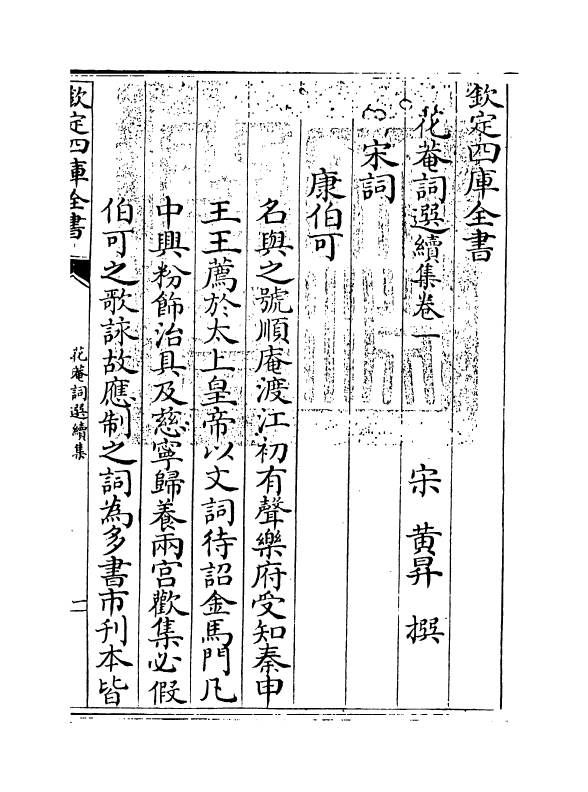 欽定四庫全書
花菴詞選續集卷一
宋 黃昇 撰
宋詞
康伯可
名與之號順庵渡江初有聲樂府受知秦申
王王薦於太上皇帝以文詞待詔金馬門凡
中興粉飾治具及慈寧歸養兩宮歡集必假
伯可之歌詠故應制之詞為多書市刊本皆
欽定四庫全書
花菴詞選續集